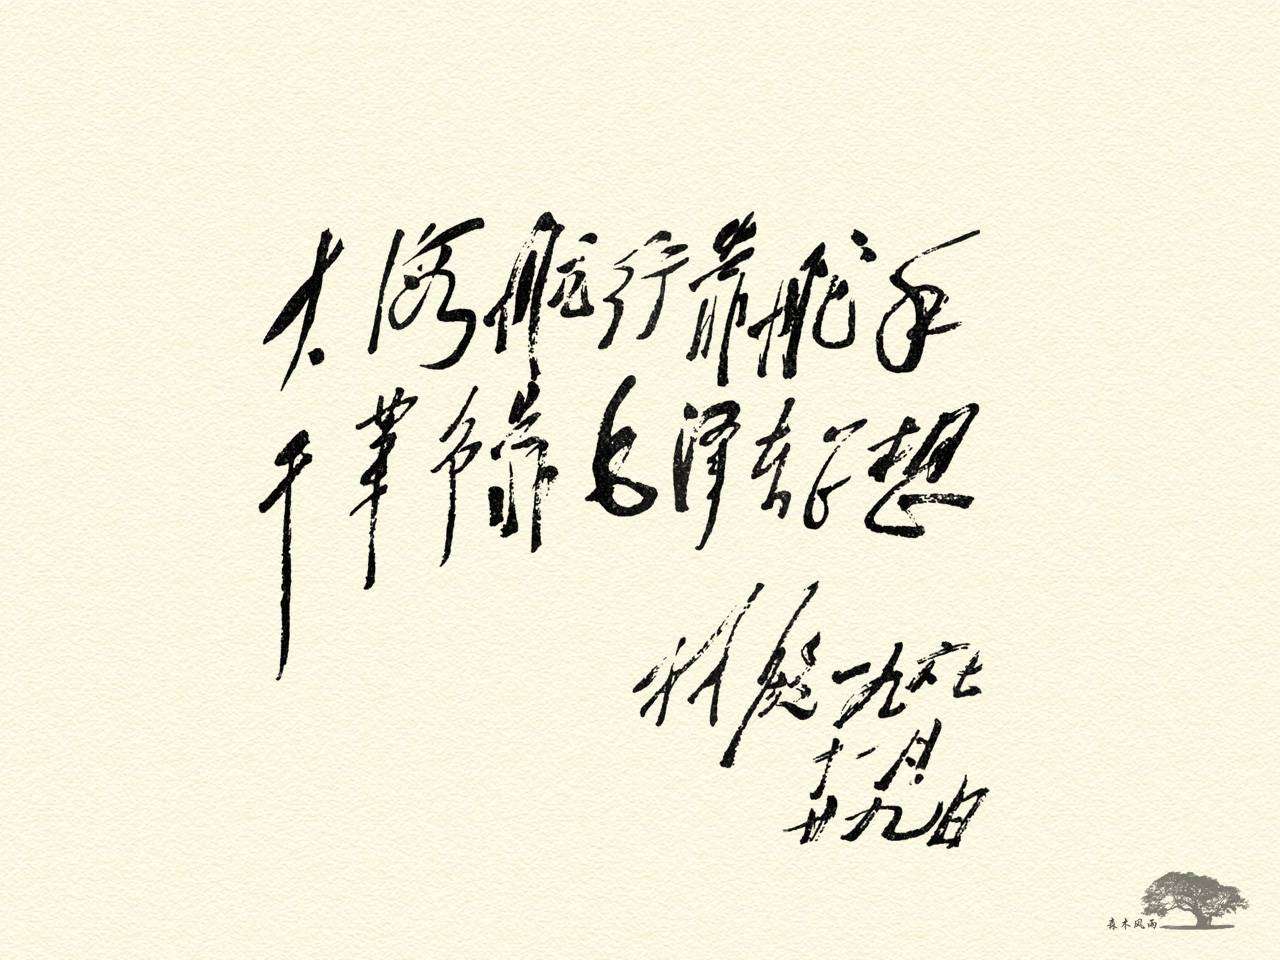 大海航行靠舵手
干革命靠毛泽东思想
林彪一九六七
十一月
廿九日
森木风雨